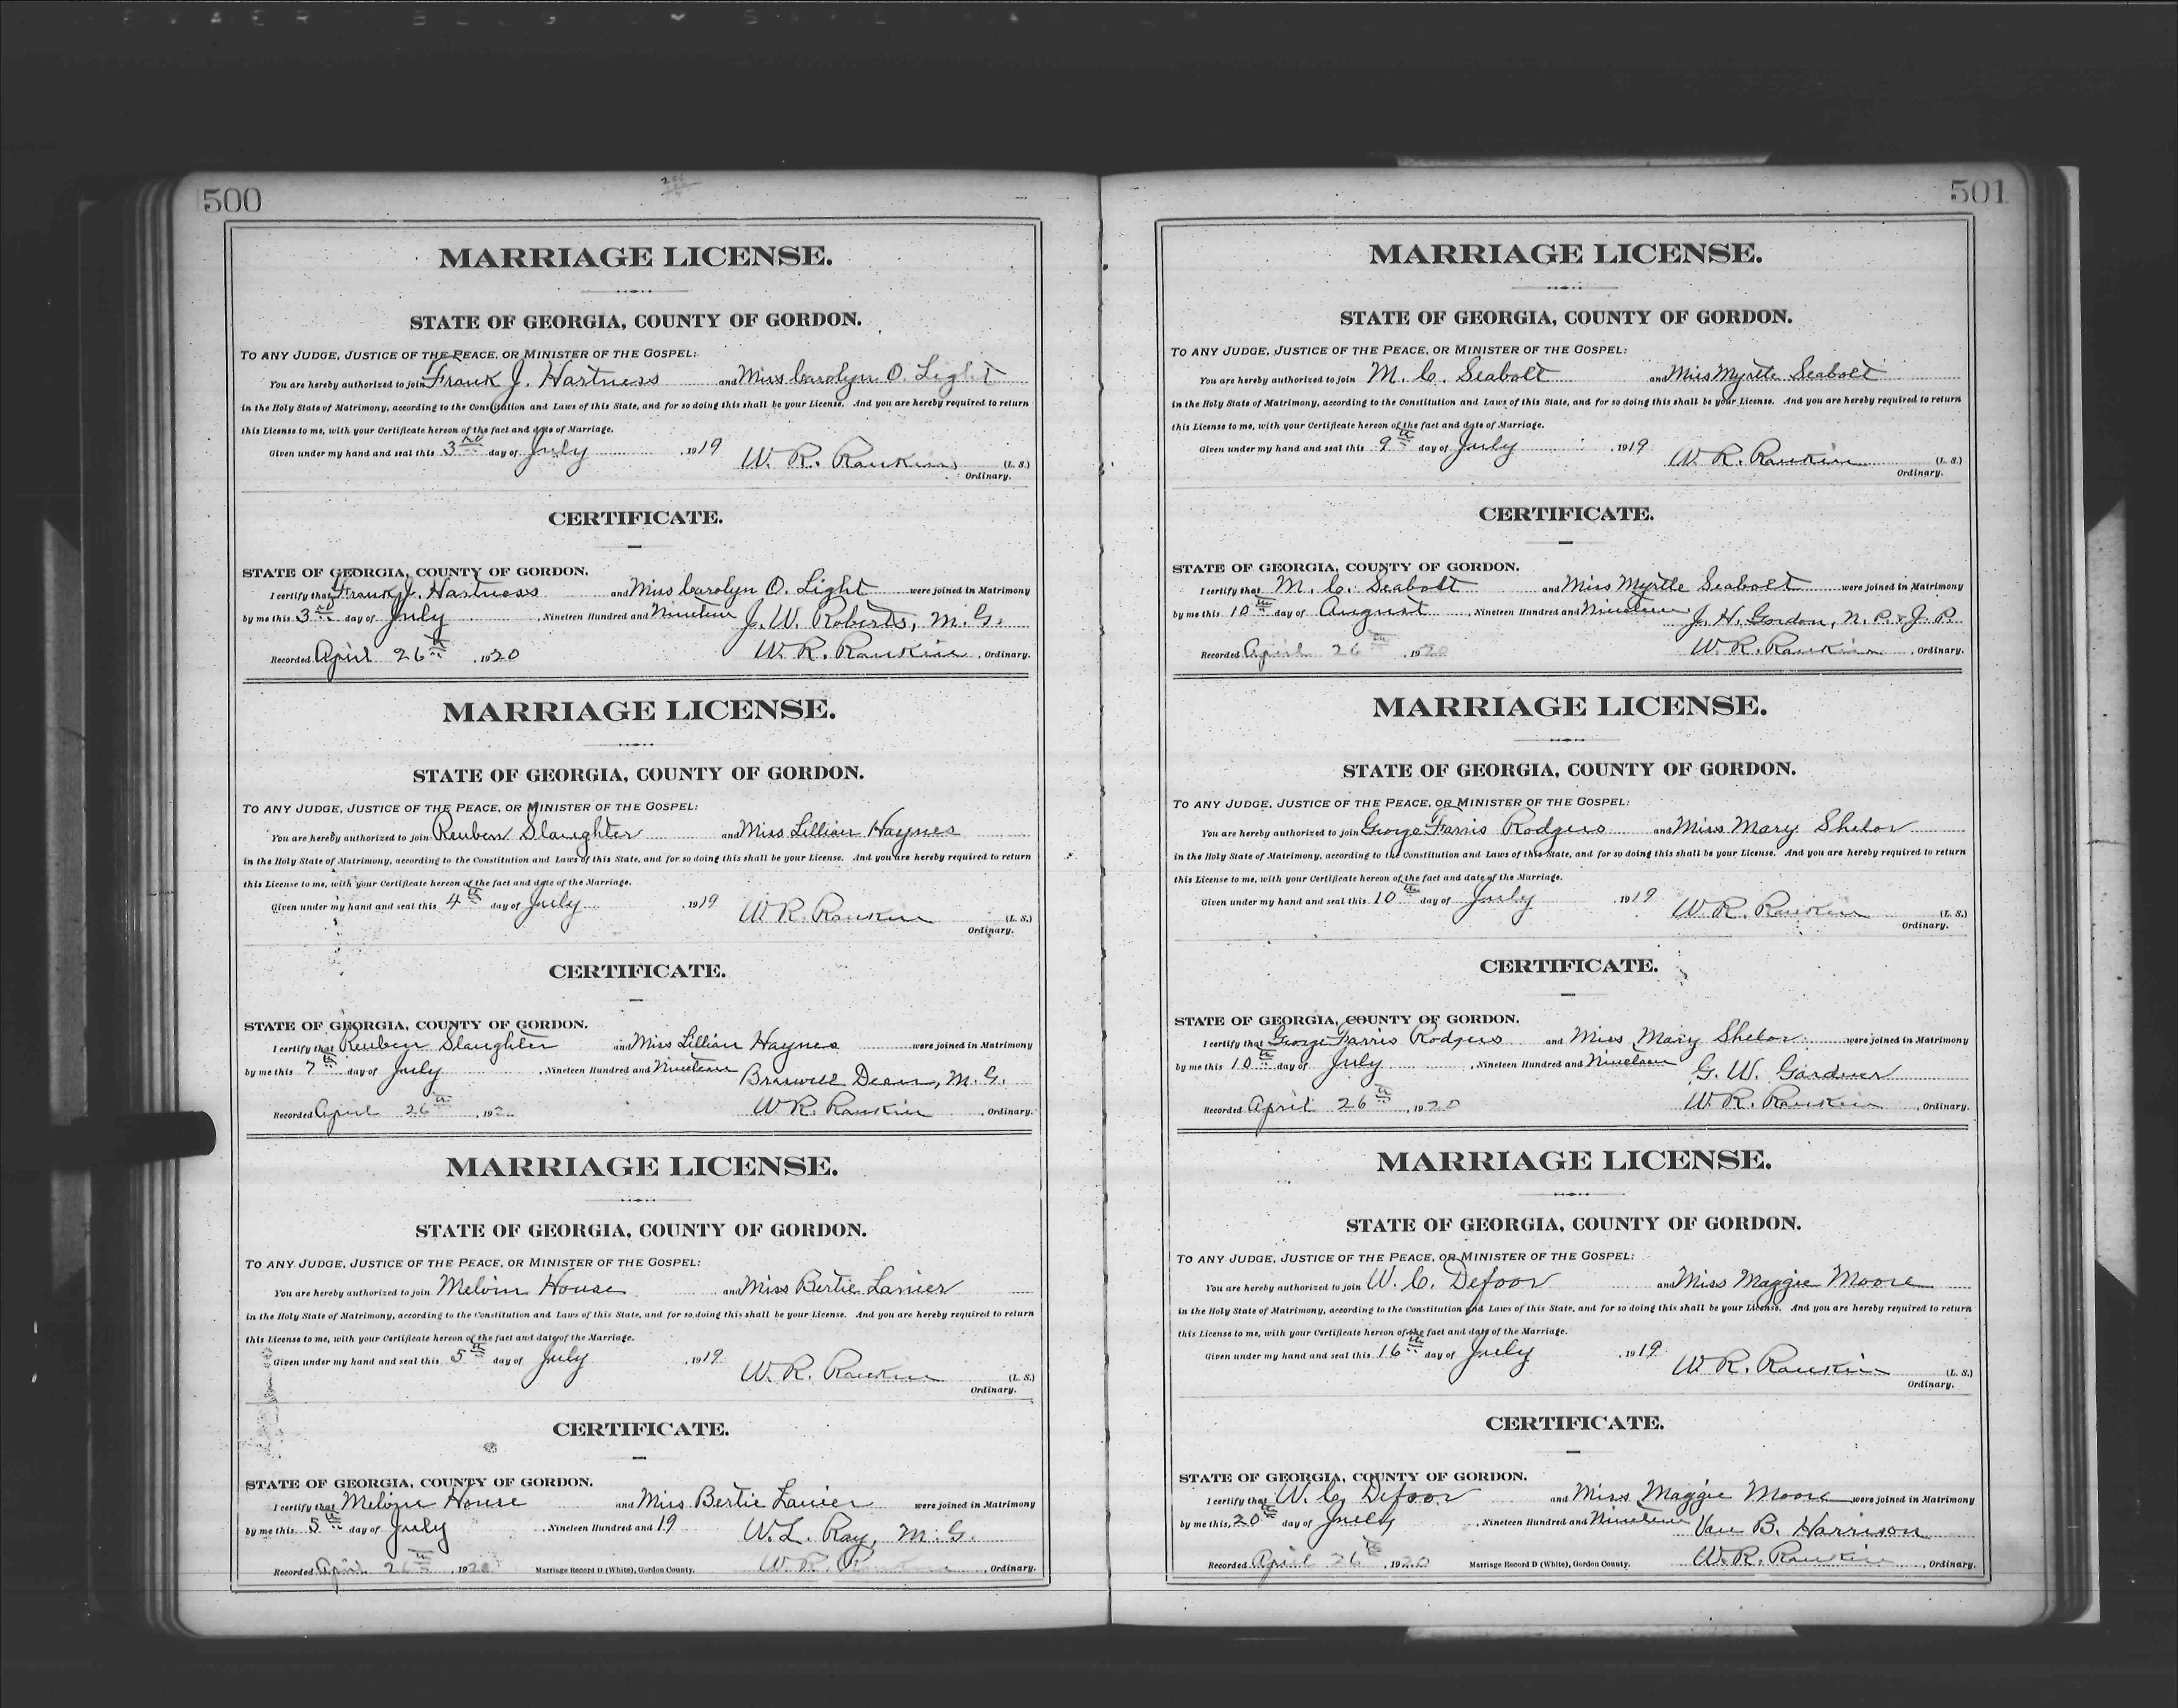 500
MARRIAGE LICENSE.
STATE OF GEORGIA, COUNTY OF GORDON.
TO ANY JUDGE, JUSTICE OF THE PEACE, OR MINISTER OF THE GOSPEL:
You are hereby authorized to join Frank J. Hartness and Miss Carolyn O. Light
in the Holy State of Matrimony, according to the Constitution and Laws of this State, and for so doing this shall be your License. And you are hereby required to return
this License to me, with your Certificate hereon of the fact and date of Marriage.
Given under my hand and seal this 3rd day of July , 1919 W. R. Rankin (L. S.)
Ordinary.
CERTIFICATE.
STATE OF GEORGIA, COUNTY OF GORDON.
I certify that Frank J. Hartness and Miss Carolyn O. Light were joined in Matrimony
by me this 3rd day of July , Nineteen Hundred and Nineteen J. W. Roberts, M. G.
Recorded April 26th , 1920 W. R. Rankin , Ordinary.
MARRIAGE LICENSE.
STATE OF GEORGIA, COUNTY OF GORDON.
TO ANY JUDGE, JUSTICE OF THE PEACE, OR MINISTER OF THE GOSPEL:
You are hereby authorized to join Reuben Slaughter and Miss Lillian Haynes
in the Holy State of Matrimony, according to the Constitution and Laws of this State, and for so doing this shall be your License. And you are hereby required to return
this License to me, with your Certificate hereon of the fact and date of the Marriage.
Given under my hand and seal this 4th day of July , 1919 W. R. Rankin (L. S.)
Ordinary.
CERTIFICATE.
STATE OF GEORGIA, COUNTY OF GORDON.
I certify that Reuben Slaughter and Miss Lillian Haynes were joined in Matrimony
by me this 7th day of July , Nineteen Hundred and Nineteen Braswell Dean, M. G.
Recorded April 26th , 192 W. R. Rankin , Ordinary.
MARRIAGE LICENSE.
STATE OF GEORGIA, COUNTY OF GORDON.
TO ANY JUDGE, JUSTICE OF THE PEACE, OR MINISTER OF THE GOSPEL:
You are hereby authorized to join Melvin House and Miss Bertie Lanier
in the Holy State of Matrimony, according to the Constitution and Laws of this State, and for so doing this shall be your License. And you are hereby required to return
this License to me, with your Certificate hereon of the fact and date of the Marriage.
Given under my hand and seal this 5th day of July , 1919 W. R. Rankin (L. S.)
Ordinary.
CERTIFICATE.
STATE OF GEORGIA, COUNTY OF GORDON.
I certify that Melvin House and Miss Bertie Lanier were joined in Matrimony
by me this 5th day of July , Nineteen Hundred and 19 W. L. Ray, M. G.
Recorded April 26th , 1920 Marriage Record D (White), Gordon County. W. R. Rankin , Ordinary.
501
MARRIAGE LICENSE.
STATE OF GEORGIA, COUNTY OF GORDON.
TO ANY JUDGE, JUSTICE OF THE PEACE, OR MINISTER OF THE GOSPEL:
You are hereby authorized to join M. C. Seabolt and Miss Myrtle Seabolt
in the Holy State of Matrimony, according to the Constitution and Laws of this State, and for so doing this shall be your License. And you are hereby required to return
this License to me, with your Certificate hereon of the fact and date of Marriage.
Given under my hand and seal this 9th day of July , 1919 W. R. Rankin (L. S.)
Ordinary.
CERTIFICATE.
STATE OF GEORGIA, COUNTY OF GORDON.
I certify that M. C. Seabolt and Miss Myrtle Seabolt were joined in Matrimony
by me this 10th day of August , Nineteen Hundred and Nineteen J. H. Gordon, N. P. & J. P.
Recorded April 26th , 1920 W. R. Rankin , Ordinary.
MARRIAGE LICENSE.
STATE OF GEORGIA, COUNTY OF GORDON.
TO ANY JUDGE, JUSTICE OF THE PEACE, OR MINISTER OF THE GOSPEL:
You are hereby authorized to join George Farris Rodgers and Miss Mary Shelor
in the Holy State of Matrimony, according to the Constitution and Laws of this State, and for so doing this shall be your License. And you are hereby required to return
this License to me, with your Certificate hereon of the fact and date of the Marriage.
Given under my hand and seal this 10th day of July , 1919 W. R. Rankin (L. S.)
Ordinary.
CERTIFICATE.
STATE OF GEORGIA, COUNTY OF GORDON.
I certify that George Farris Rodgers and Miss Mary Shelor were joined in Matrimony
by me this 10th day of July , Nineteen Hundred and Nineteen G. W. Gardner
Recorded April 26th , 1920 W. R. Rankin , Ordinary.
MARRIAGE LICENSE.
STATE OF GEORGIA, COUNTY OF GORDON.
TO ANY JUDGE, JUSTICE OF THE PEACE, OR MINISTER OF THE GOSPEL:
You are hereby authorized to join W. C. Defoor and Miss Maggie Moore
in the Holy State of Matrimony, according to the Constitution and Laws of this State, and for so doing this shall be your License. And you are hereby required to return
this License to me, with your Certificate hereon of the fact and date of the Marriage.
Given under my hand and seal this 16th day of July , 1919 W. R. Rankin (L. S.)
Ordinary.
CERTIFICATE.
STATE OF GEORGIA, COUNTY OF GORDON.
I certify that W. C. Defoor and Miss Maggie Moore were joined in Matrimony
by me this 20th day of July , Nineteen Hundred and Nineteen Van B. Harrison
Recorded April 26th , 1920 Marriage Record D (White), Gordon County. W. R. Rankin , Ordinary.